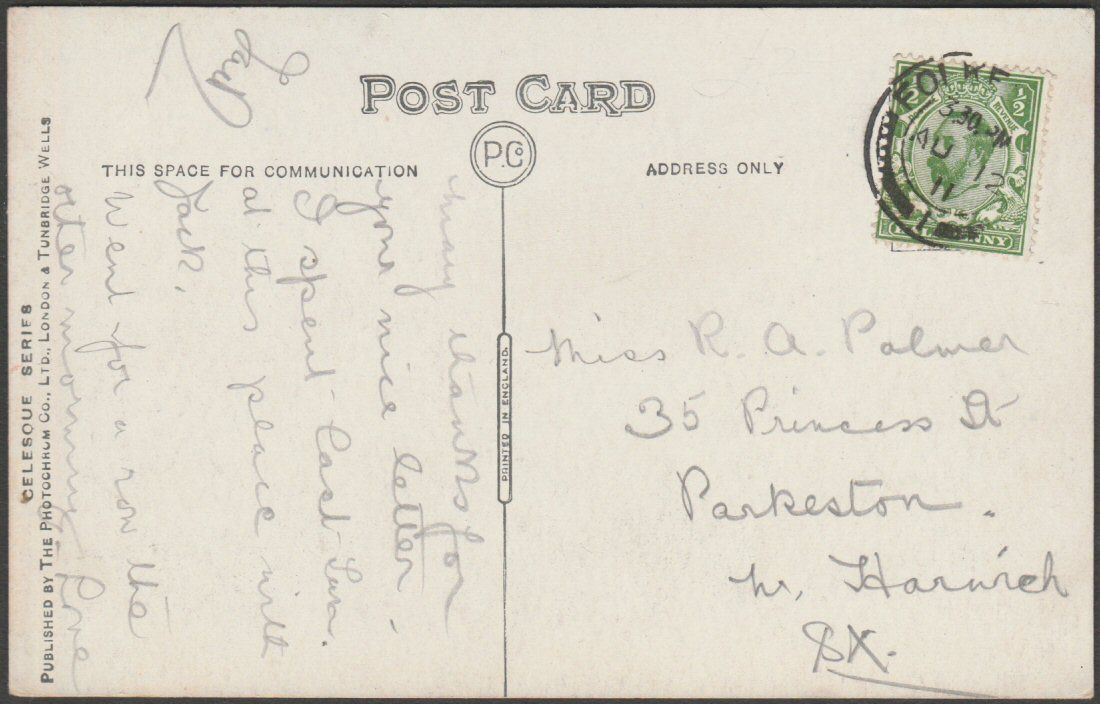 POST CARD
THIS SPACE FOR COMMUNICATION
P.Co
ADDRESS ONLY
FOLKE
3.30 PM
AU 2
11
½
½
REVENUE
NNY
Many thanks for
your nice letter.
I spent last Sun.
at this place with
Jack.
Went for a row the
other morning. Love
Miss R. A. Palmer
35 Princess St
Parkeston.
nr. Harwich
SX.
PRINTED IN ENGLAND.
CELESQUE SERIES
PUBLISHED BY THE PHOTOCHROM CO., LTD., LONDON & TUNBRIDGE WELLS